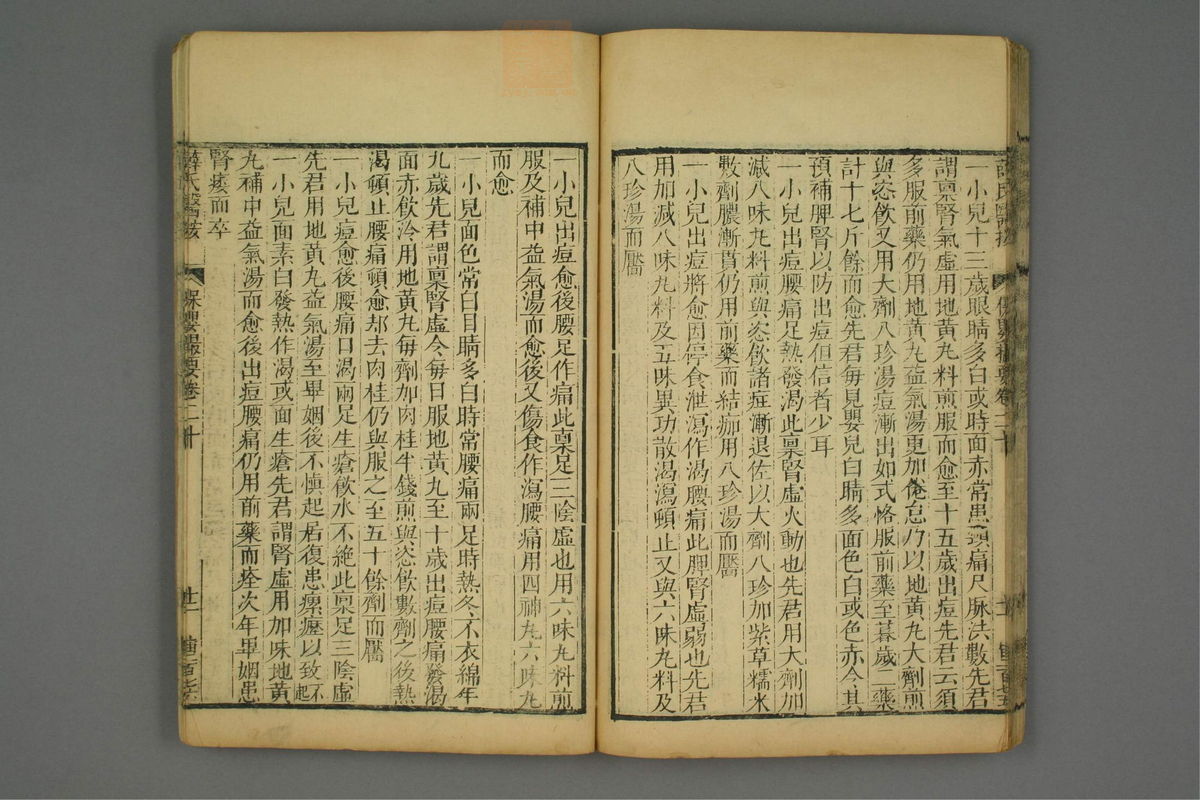 薛氏醫按 保嬰撮要卷二十
一小兒十三歲眼睛多白或時面赤常患頭痛尺脉洪數先君
謂稟腎氣虛用地黃丸料煎服而愈至十五歲出痘先君云須
多服前藥仍用地黃丸益氣湯更加倦怠乃以地黃丸大劑煎
與恣飲又用大劑八珍湯痘漸出如式恪服前藥至暮歲二藥
計十七斤餘而愈先君每見嬰兒白睛多面色白或色赤令其
預補脾腎以防出痘但信者少耳
一小兒出痘腰痛足熱發渴此稟腎虛火動也先君用大劑加
減八味丸料煎與恣飲諸症漸退佐以大劑八珍加紫草糯米
數劑膿漸貫仍用前藥而結痂用八珍湯而靨
一小兒出痘將愈因停食泄瀉作渴腰痛此脾腎虛弱也先君
用加減八味丸料及五味異功散渴瀉頓止又與六味丸料及
八珍湯而靨
一小兒出痘愈後腰足作痛此稟足三陰虛也用六味丸料煎
服及補中益氣湯而愈後又傷食作瀉腰痛用四神丸六味丸
而愈
一小兒面色常白目睛多白時常腰痛兩足時熱冬不衣綿年
九歲先君謂稟腎虛令每日服地黃丸至十歲出痘腰痛發渴
面赤飲冷用地黃丸每劑加肉桂半錢煎與恣飲數劑之後熱
渴頓止腰痛頓愈却去肉桂仍與服之至五十餘劑而靨
一小兒痘愈後腰痛口渴兩足生瘡飲水不絕此稟足三陰虛
先君用地黃丸益氣湯至畢姻後不愼起居復患瘰癧以致不起
一小兒面素白發熱作渴或面生瘡先君謂腎虛用加味地黃
丸補中益氣湯而愈後出痘腰痛仍用前藥而痊次年畢姻患
腎痿而卒
薛氏醫按 保嬰撮要卷二十